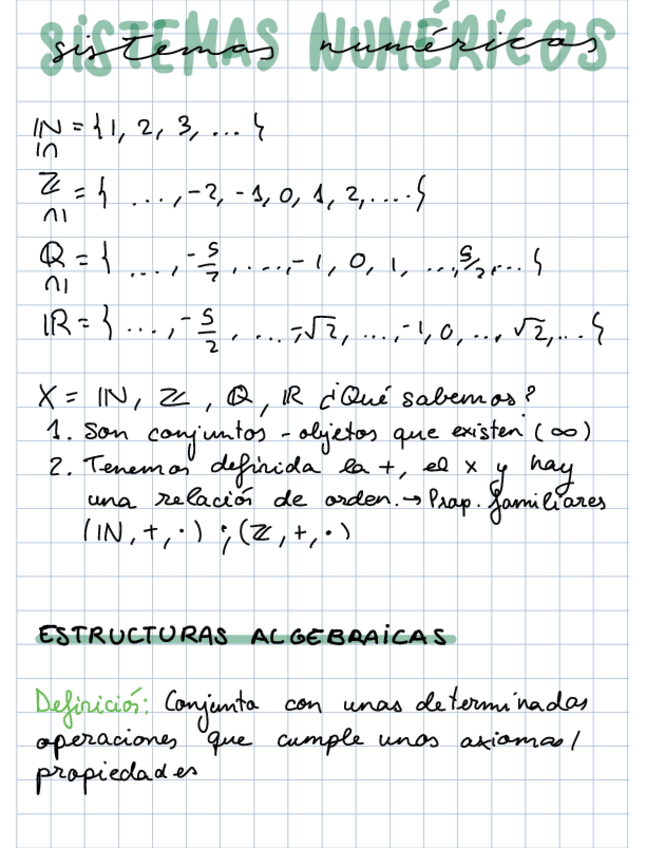 SISTEMAS NUMÉRICOS
sistemas numéricos
ℕ = {1, 2, 3, ... }
I∩
ℤ = { ..., -2, -1, 0, 1, 2, .... }
∩I
ℚ = { ..., -5/2, ..., -1, 0, 1, ..., 5/2, ... }
∩I
ℝ = { ..., -5/2, ... -√2, ..., -1, 0, ..., √2, ... }
X = ℕ, ℤ, ℚ, ℝ ¿Qué sabemos?
1. Son conjuntos - objetos que existen (∞)
2. Tenemos definida la +, el x y hay
una relación de orden. → Prop. familiares
(ℕ, +, ·) ; (ℤ, +, ·)
ESTRUCTURAS ALGEBRAICAS
Definición: Conjunto con unas determinadas
operaciones que cumple unos axiomas/
propiedades